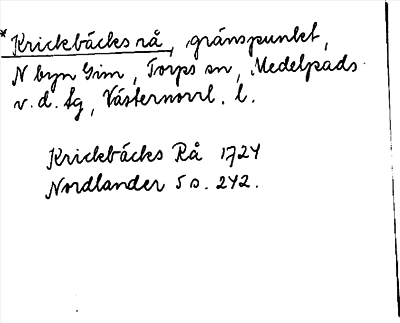 *Krickbäcks rå, gränspunkt,
N byn Gim, Torps sn, Medelpads
v. d. tg, Västernorrl. l.
Krickbäcks Rå 1724
Nordlander 5 s. 242.